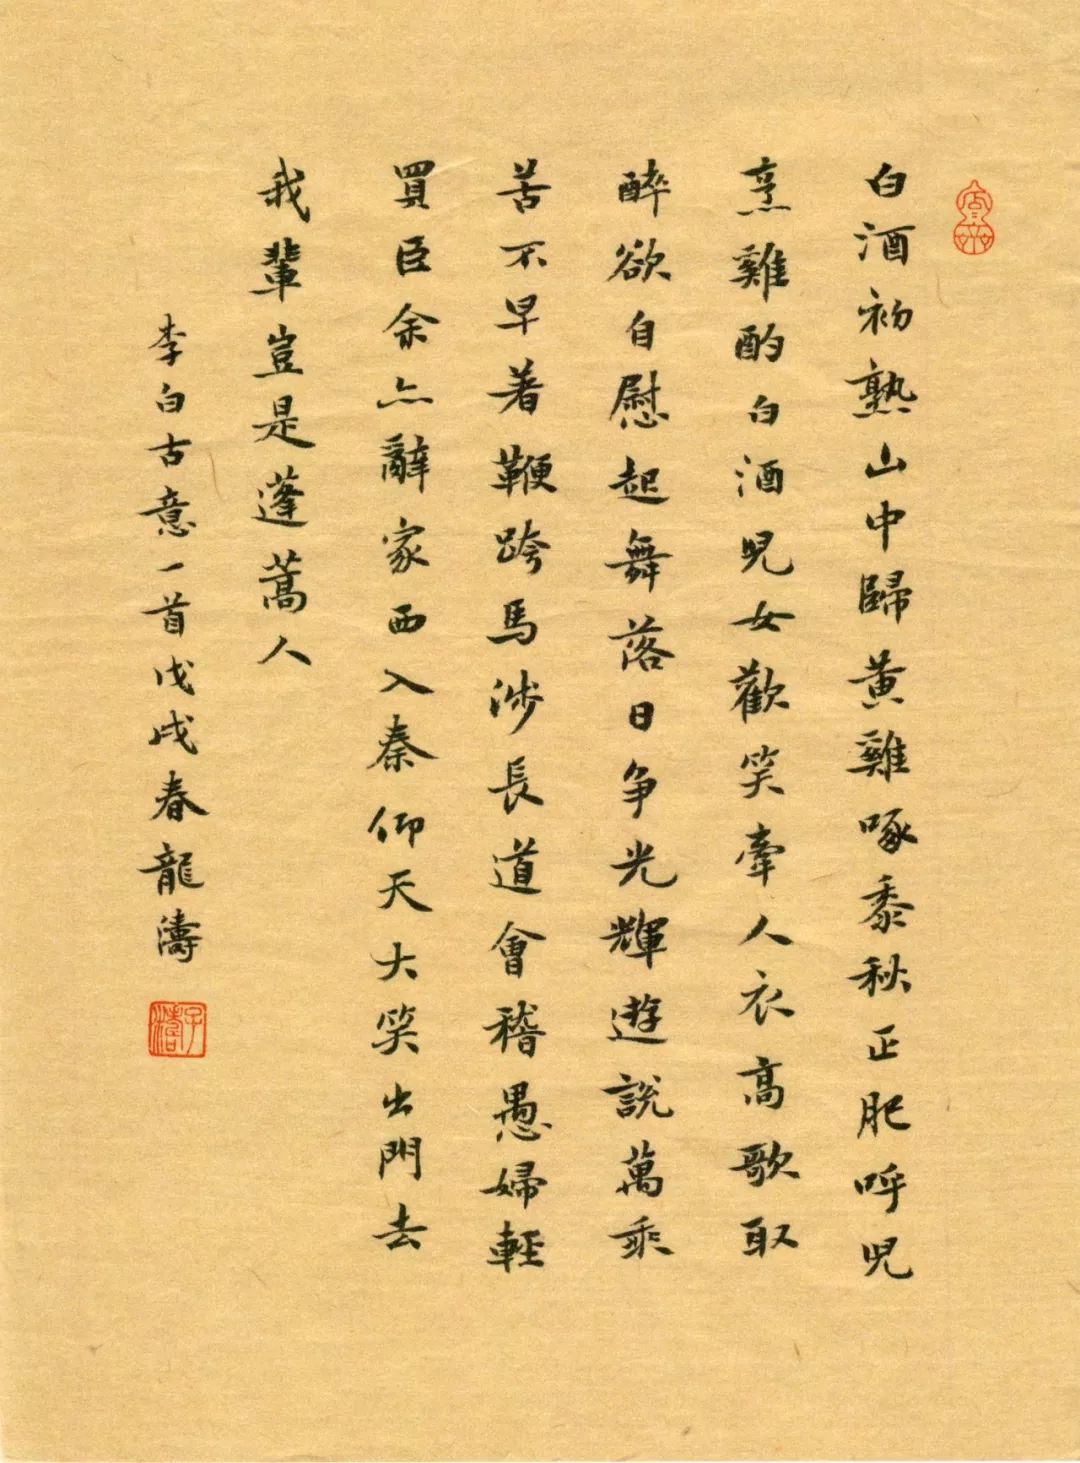 白酒初熟山中歸黃雞啄黍秋正肥呼児
烹雞酌白酒児女歡笑牽人衣高歌取
醉欲自慰起舞落日争光輝遊說萬乘
苦不早著鞭跨馬涉長道會稽愚婦輕
買臣余亦辭家西入秦仰天大笑出門去
我輩豈是蓬蒿人
李白古意一首戊戌春龍濤